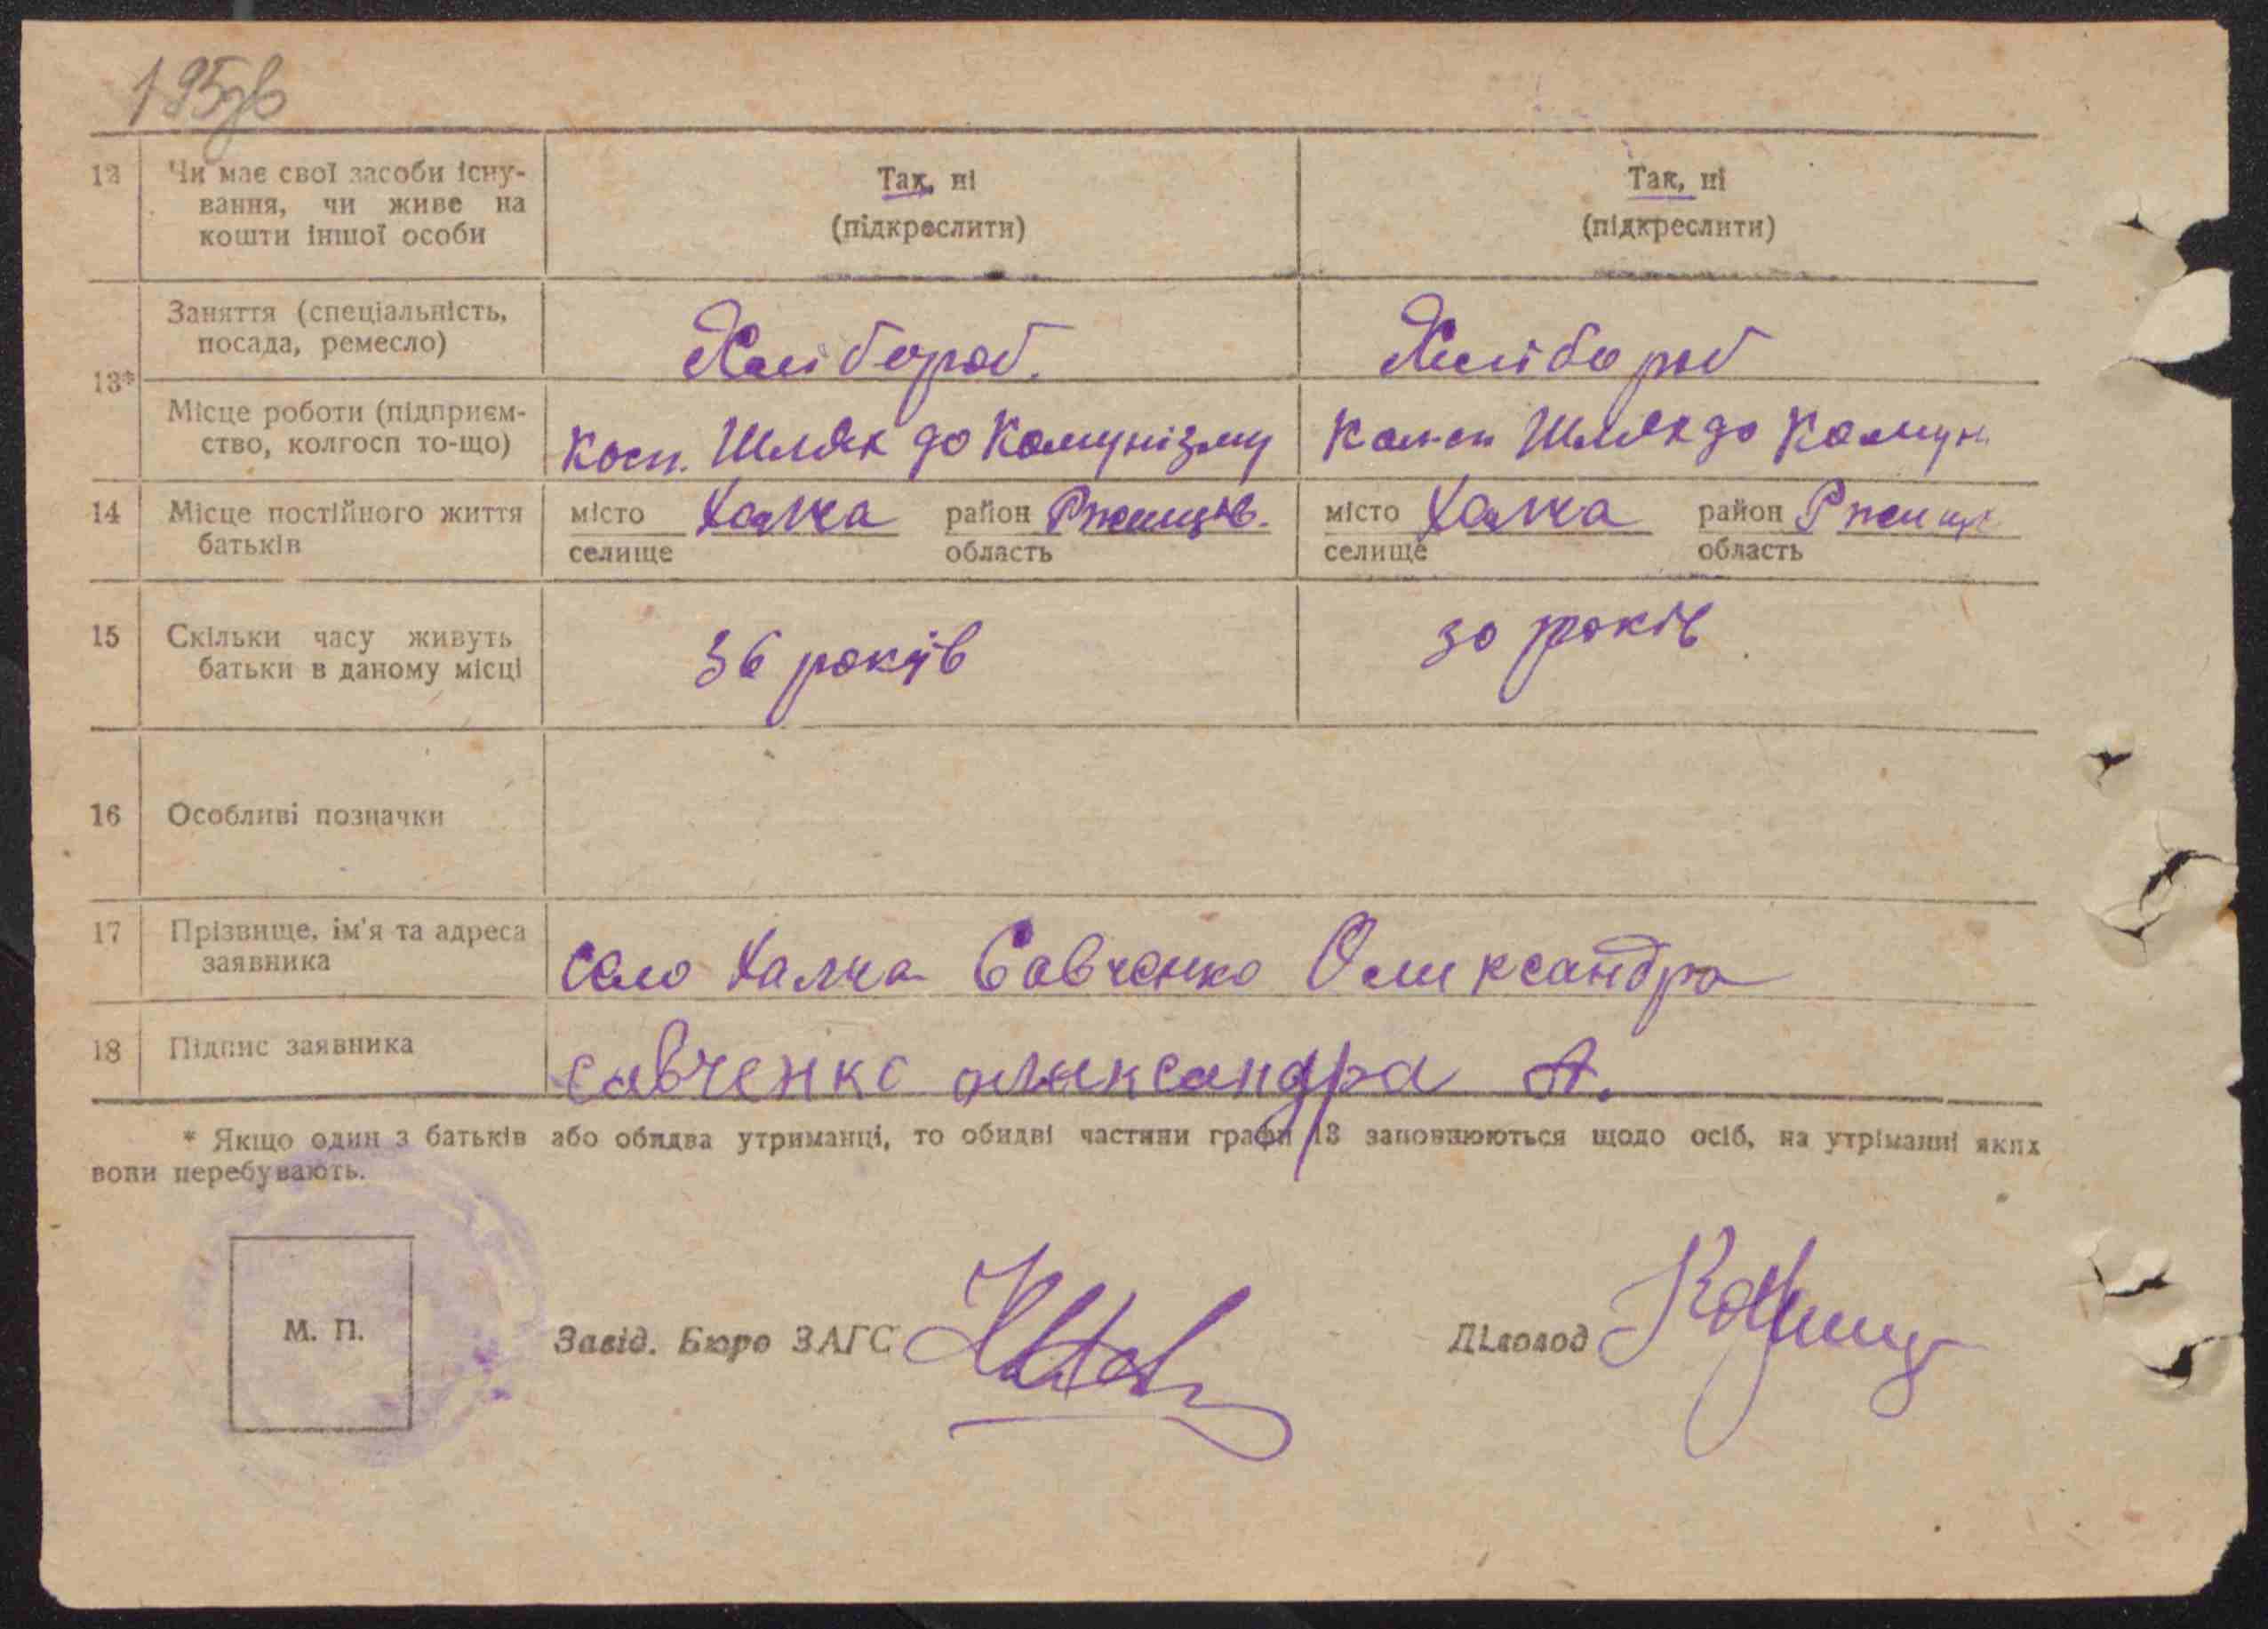 195зв
12 Чи має свої засоби існу- Так, ні Так, ні
вання, чи живе на (підкреслити) (підкреслити)
кошти іншої особи
Заняття (спеціальність, Хлібороб. Хлібороб
посада, ремесло)
13*
Місце роботи (підприєм- Косп. Шлях до Комунізму Шлях до Комун.
ство, колгосп то-що)
14 Місце постійного життя місто Халча район Ржищів. місто Халча район Ржищ
батьків селище область селище область
15 Скільки часу живуть 36 років 30 років
батьки в даному місці
16 Особливі позначки
17 Прізвище, ім'я та адреса село Халча Савченко Олександра
заявника
18 Підпис заявника савченко олександра А.
* Якщо один з батьків або обидва утриманці, то обидві частини графи 13 заповнюються щодо осіб, на утріманні яких
вони перебувають.
М. П. Завід. Бюро ЗАГС Діловод